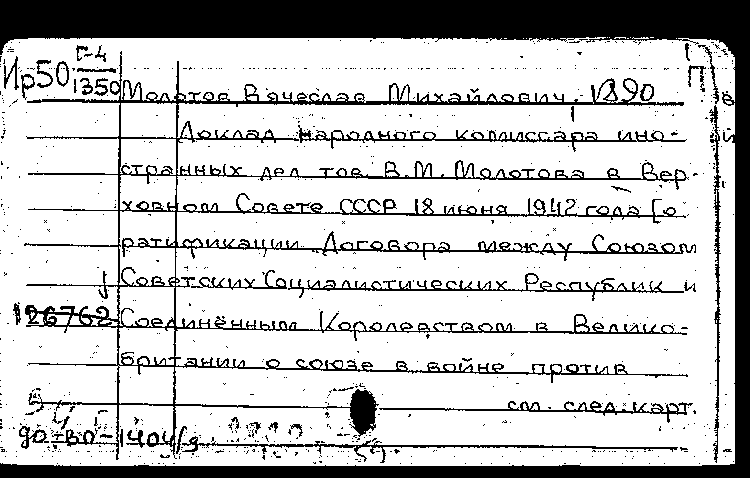 Г-4
Ир50 1350
П
Молотов, Вячеслав Михайлович. 1890
Доклад народного комиссара ино-
странных дел тов. В.М. Молотова в Вер-
ховном Совете СССР 18 июня 1942 года [о
ратификации Договора между Союзом
Советских Социалистических Республик и
126762 Соединённым Королевством в Велико-
британии о союзе в войне против
см. след. карт.
90-ВО-1404/9
59.